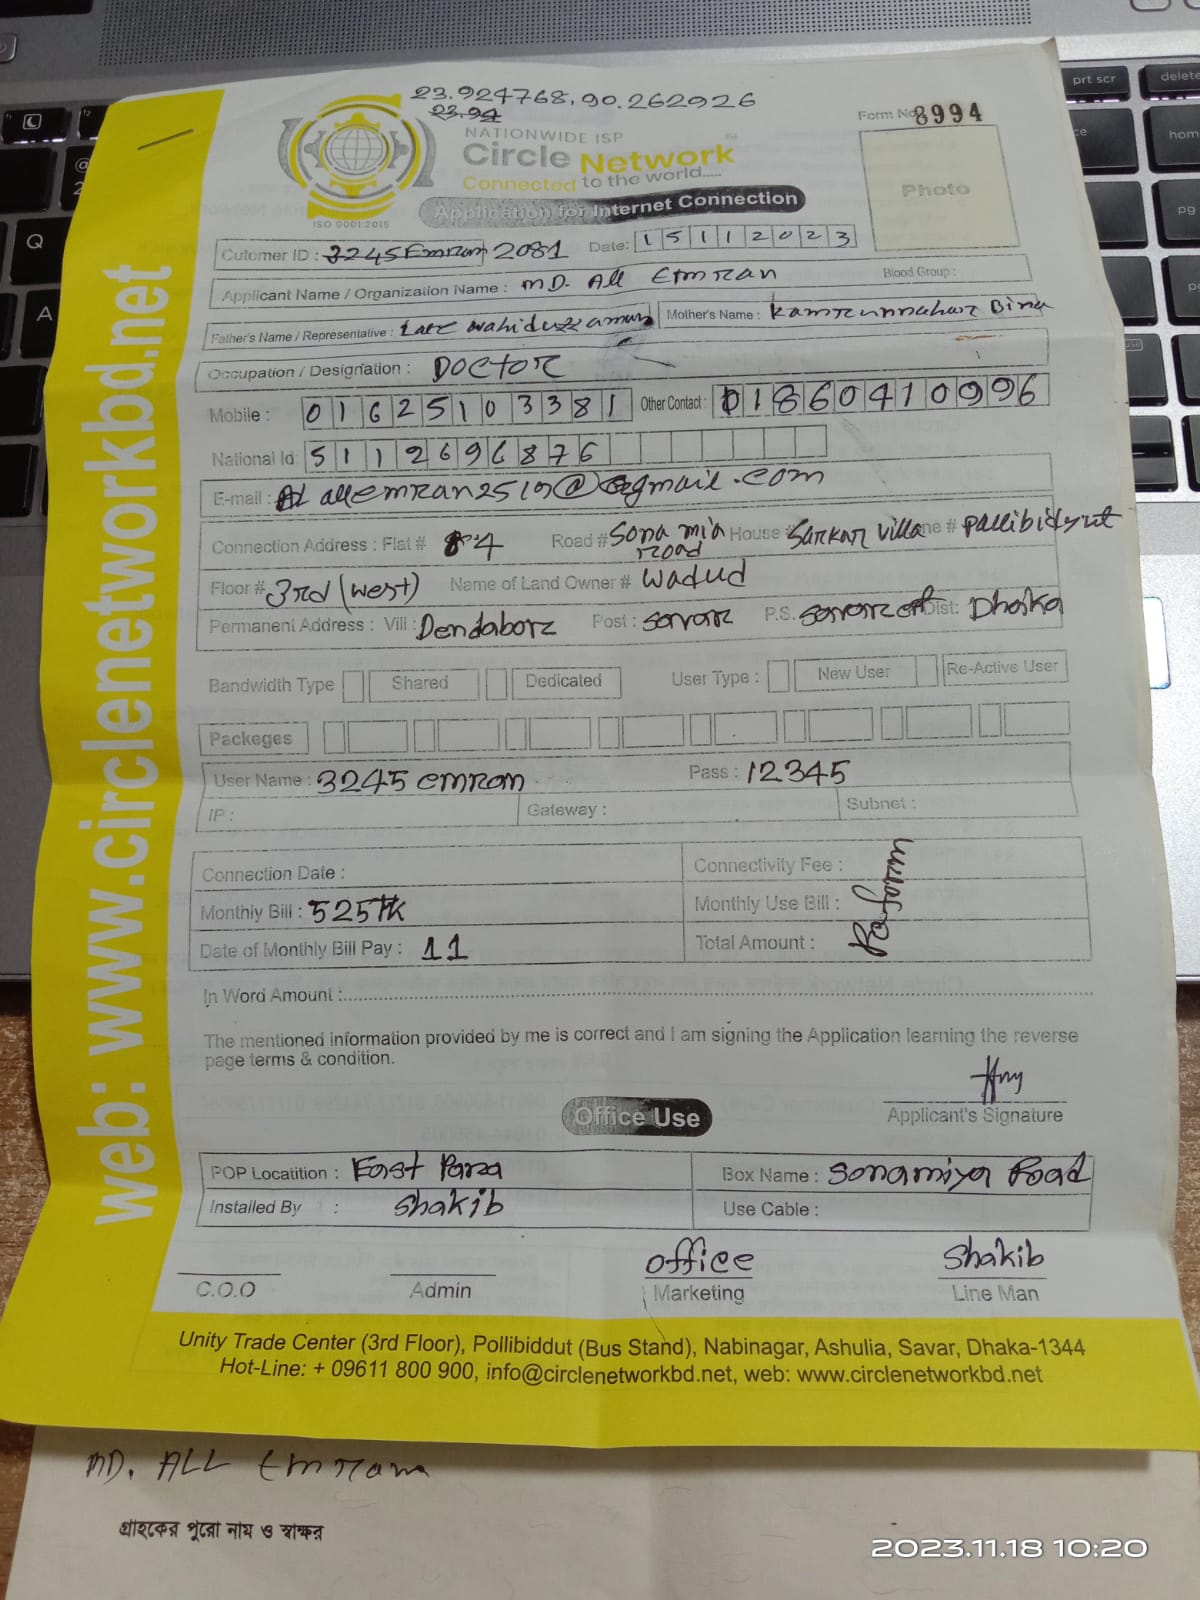 23.924768, 90.262926
23.94
Form No. 8994
NATIONWIDE ISP
Circle Network
Connected to the world.....
ISO 9001:2015
Photo
Application for Internet Connection
Cutomer ID : 3245Emran 2081 Date: 15112023
Applicant Name / Organization Name : MD. All Emran Blood Group :
Father's Name / Representative : Late Wahiduzzaman Mother's Name : Kamrunnahar Bina
Occupation / Designation : Doctor
Mobile : 01625103381 Other Contact : 01860410996
National Id: 5112696876
E-mail : allemran2519@gmail.com
Connection Address : Flat # 4 Road # Sona mia road House # Sarkar villa ne # pallibidyut
Floor # 3rd (west) Name of Land Owner # Wadud
Permanent Address : Vill : Dendabor Post : Savar P.S. Savar Dist: Dhaka
Bandwidth Type Shared Dedicated User Type : New User Re-Active User
Packeges
User Name : 3245 emran Pass : 12345
IP : Gateway : Subnet :
Connection Date : Connectivity Fee :
Monthly Bill : 525TK Monthly Use Bill :
Date of Monthly Bill Pay : 11 Total Amount :
In Word Amount :
The mentioned information provided by me is correct and I am signing the Application learning the reverse
page terms & condition.
Applicant's Signature
Office Use
POP Locatition : East Para Box Name : Sonamiya Road
Installed By : Shakib Use Cable :
office Shakib
C.O.O Admin Marketing Line Man
Unity Trade Center (3rd Floor), Pollibiddut (Bus Stand), Nabinagar, Ashulia, Savar, Dhaka-1344
Hot-Line: + 09611 800 900, info@circlenetworkbd.net, web: www.circlenetworkbd.net
web: www.circlenetworkbd.net
MD. ALL Emran
গ্রাহকের পুরো নাম ও স্বাক্ষর
2023.11.18 10:20